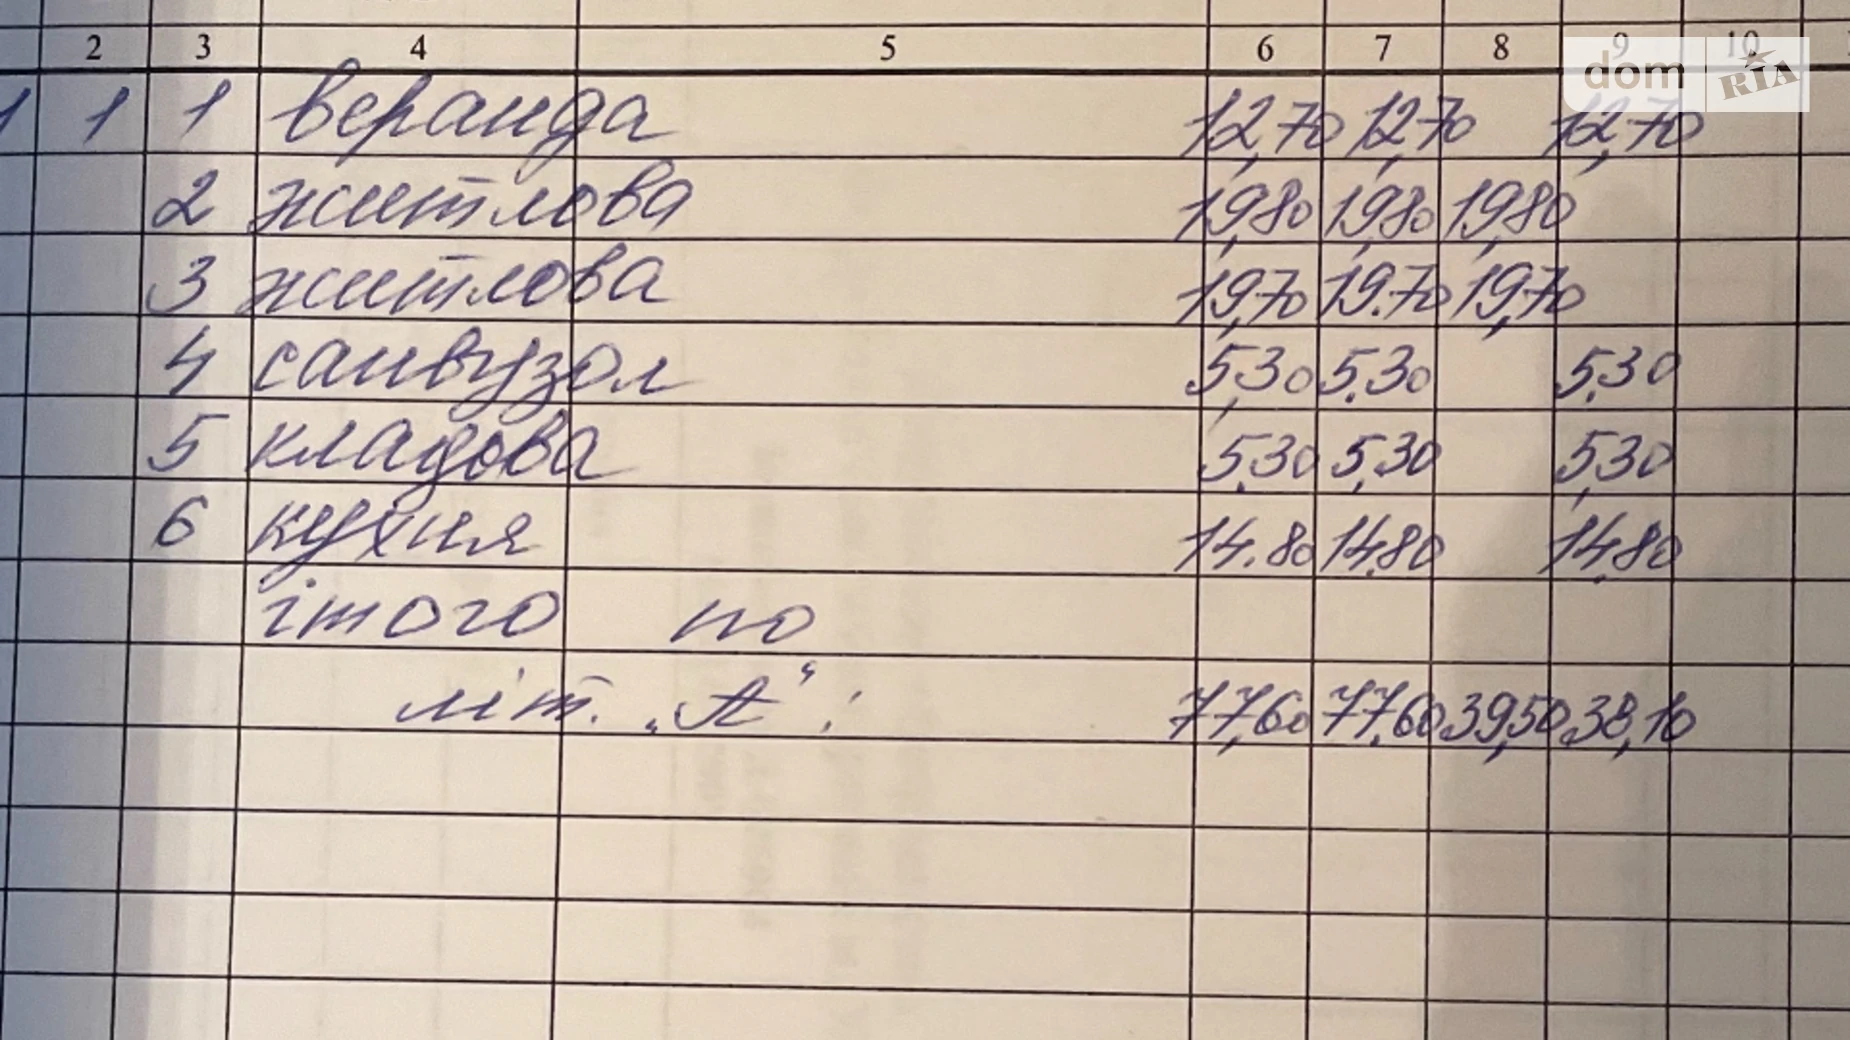 2 3 4 5 6 7 8 9 10
dom RIA
1 1 1 веранда 12,70 12,70 12,70
2 житлова 19,80 19,80 19,80
3 житлова 19,70 19.70 19,70
4 санвузол 5,30 5.30 5.30
5 кладова 5.30 5,30 5,30
6 кухня 14.80 14.80 14.80
ітого по
літ. „А“: 77,60 77.60 39,50 38,10